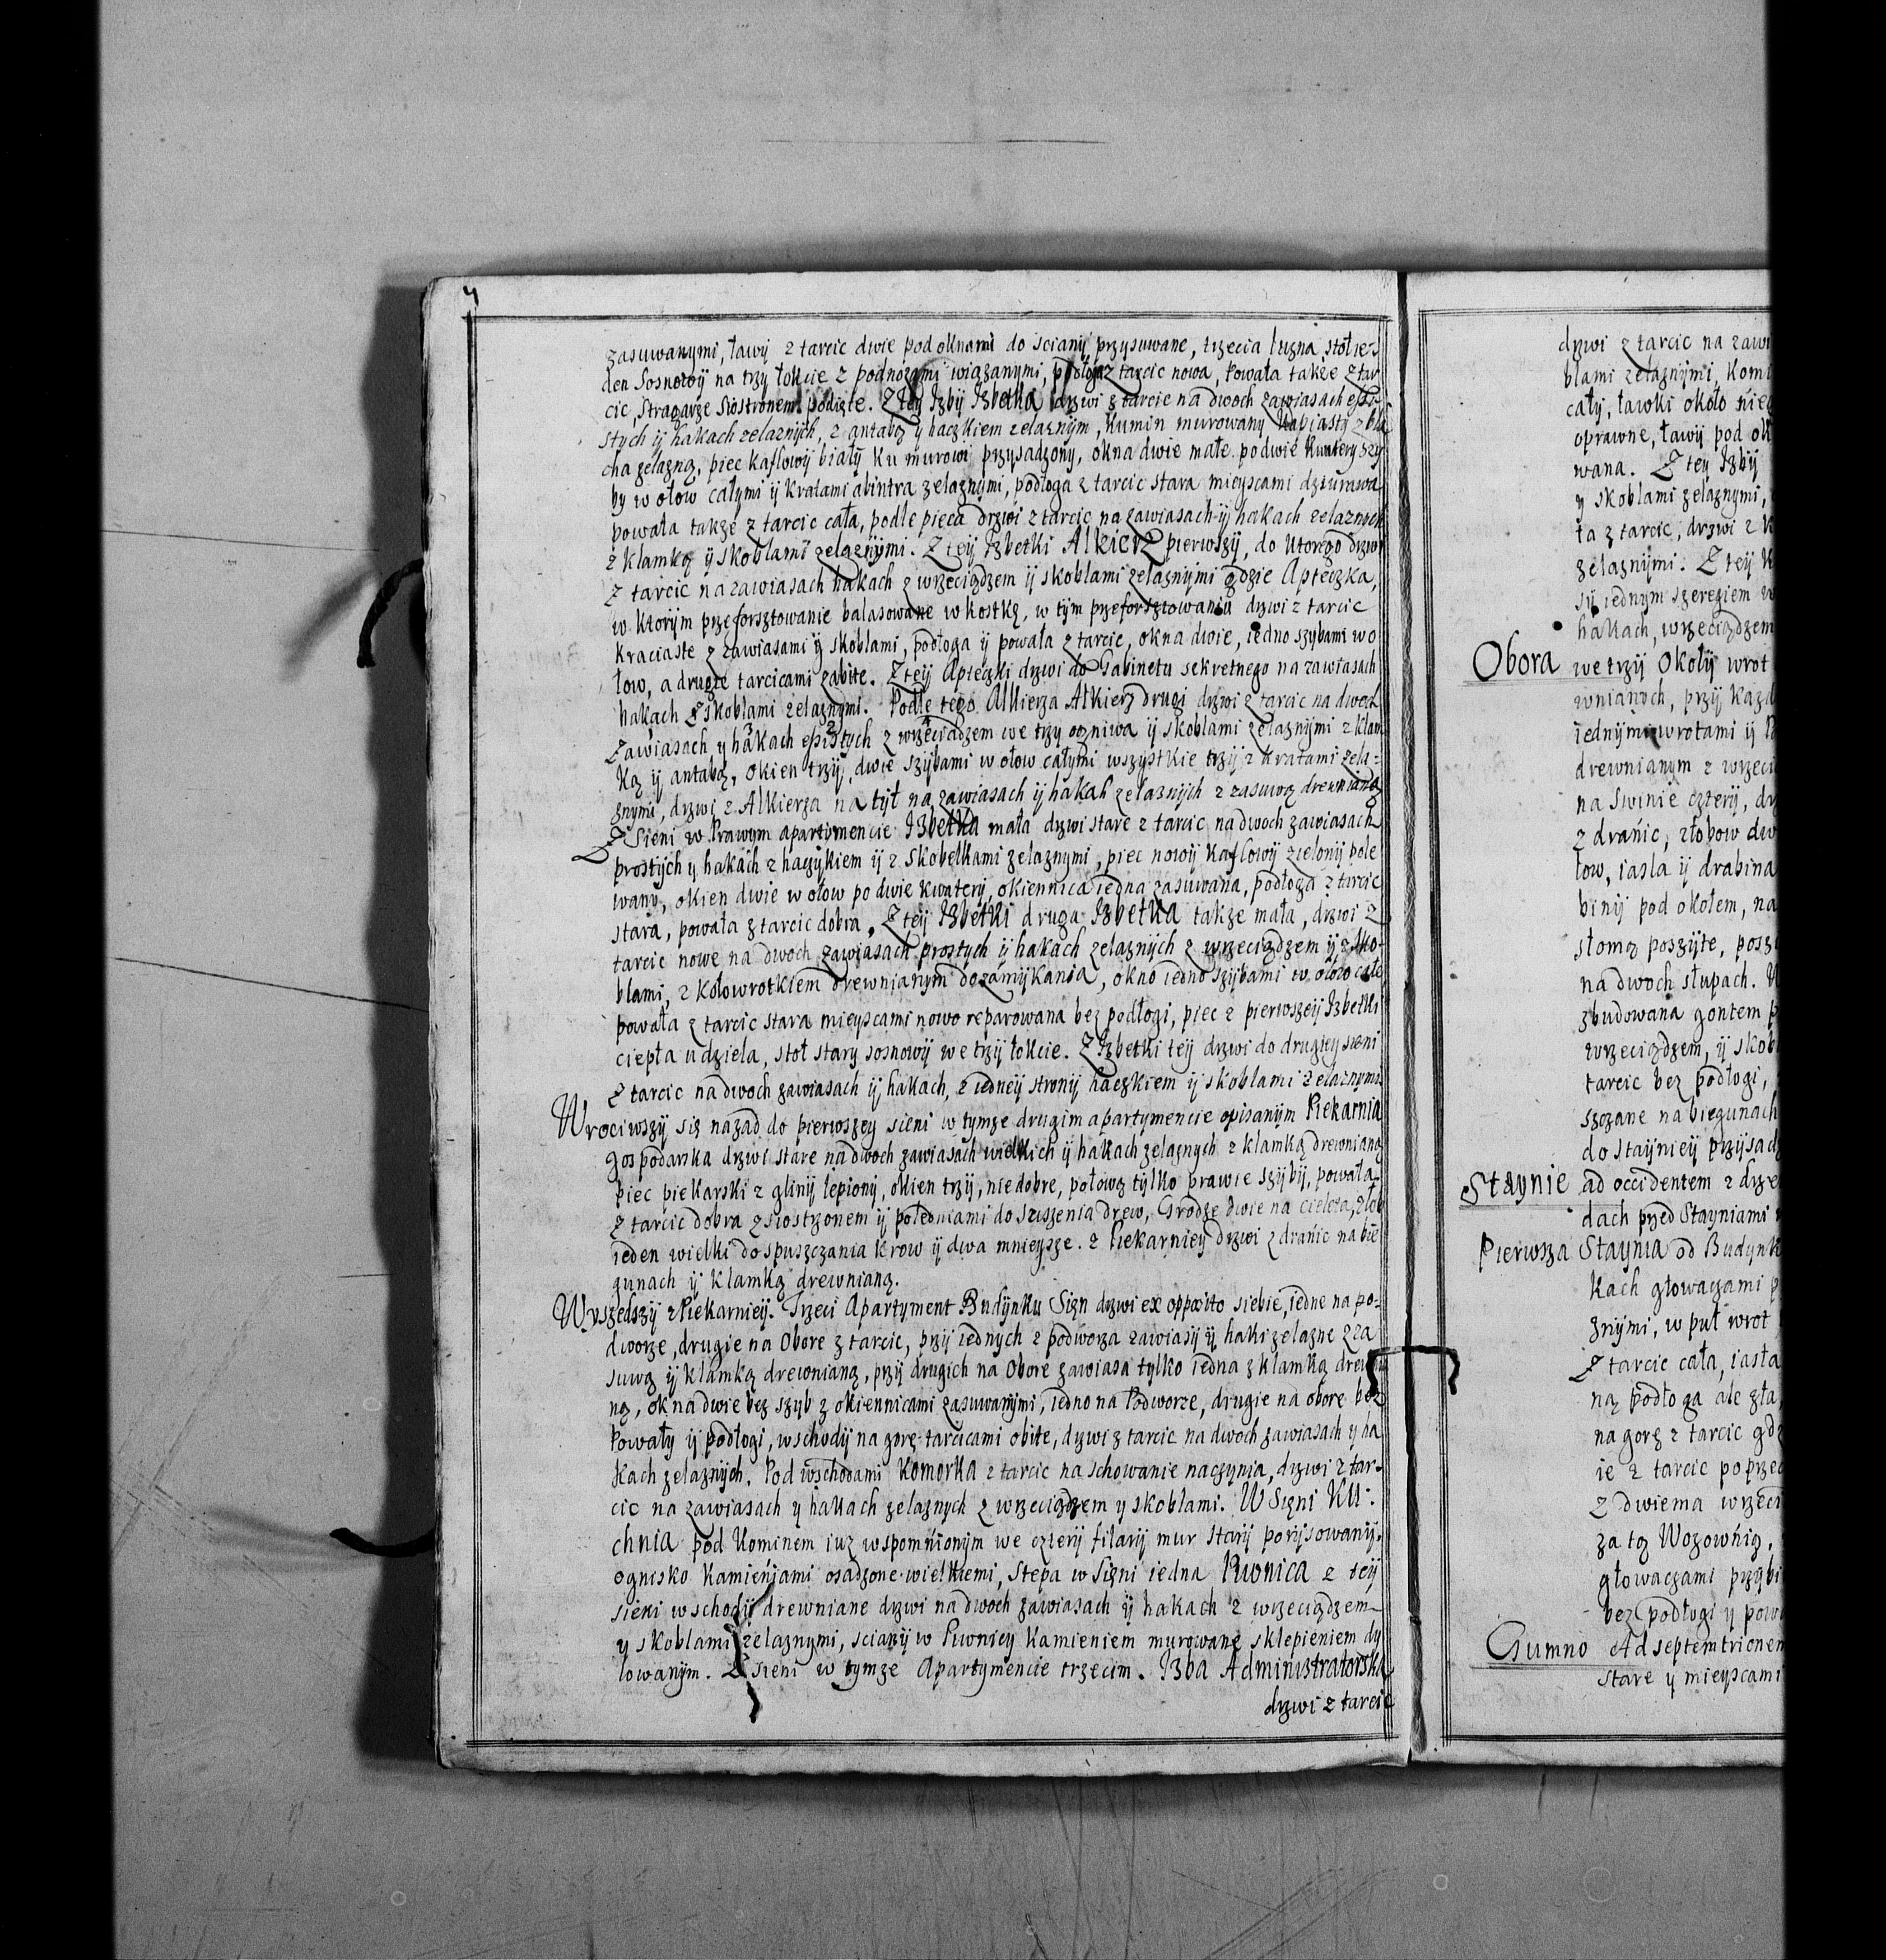 4
zasuwanymi, ławy z tarcic dwie pod oknami do sciany przysuwane, trzecia luzna stoł ie-
den Sosnowy na trzy łokcie z podnozami wiązanymi, podłoga z tarcic nowa, Powała także z tar
cic, Stragarze Siostronem podięte. Z tey Izby Izbetka drzwi z tarcic na dwoch zawiasach esso-
stych ÿ hakach zelaznÿch, z antabą y haczkiem zelaznym, Kumin murowany Kapiasty z bla
cha zelazną, piec kaflowÿ biały ku murowi przysadzony, okna dwie małe po dwie kwatery szy
by w ołow całymi ÿ kratami abintra zelaznymi, podłoga z tarcic stara mieyscami dziurawa
powała także z tarcic cała, podle pieca drzwi z tarcic na zawiasach ÿ hakach zelaznych
z klamką ÿ skoblami zelaznÿmi. Z teÿ Izbetki Alkierz pierwszÿ, do ktorego drzwi
z tarcic na zawiasach hakach z wrzeciądzem ÿ skoblami zelaznÿmi gdzie Apteczka,
w ktorÿm przeforsztowanie balasowane w kostkę, w tÿm przeforsztowaniu drzwi z tarcic
kraciaste z zawiasami ÿ skoblami, podłoga ÿ powała z tarcic, okna dwie, iedno szybami w o
łow, a drugie tarcicami zabite. Z teÿ Apteczki drzwi do Gabinetu sekretnego na zawiasach
hakach z skoblami zelaznymi. Podle tego Alkierza Alkierz drugi drzwi z tarcic na dwoch
zawiasach y hakach essistych z wrzeciądzem we trzy ogniwa ÿ skoblami zelaznÿmi z klam
ką ÿ antabą, okien trzÿ, dwie szÿbami w ołow całymi wszystkie trzÿ z kratami zela-
znymi, drzwi z Alkierza na tÿł na zawiasach ÿ hakah zelaznÿch z zasuwą drewnianą
Z Sieni w Prawym apartymencie Izbetka mała drzwi stare z tarcic na dwoch zawiasach
prostych y hakach z haczykiem ÿ z Skobelkami zelaznymi, piec nowÿ Kaflowÿ zielonÿ pole
wany, okien dwie w ołow po dwie kwaterÿ, okiennica iedna zasuwana, podłoga z tarcic
stara, powała z tarcic dobra. Z teÿ Izbetki druga Izbetka także mała, drzwi z
tarcic nowe na dwoch zawiasach prostych ÿ hakach zelaznÿch z wrzeciądzem ÿ z sko-
blami, z kołowrotkiem drewnianym do zamykania, okno iedno szÿbami w ołow całe
powała z tarcic stara mieyscami nowo reparowana bez podłogi, piec z pierwszeÿ Izbetki
ciepła udziela, stoł stary sosnowÿ we trzÿ łokcie. Z Izbetki teÿ drzwi do drugiey sieni
z tarcic na dwoch zawiasach ÿ hakach, z iedneÿ stronÿ haczkiem ÿ skoblami zelaznymi
Wrociwszÿ się nazad do pierwszey sieni w tymze drugim apartymencie opisanÿm Piekarnia
gospodarska drzwi stare na dwoch zawiasach wielkich ÿ hakach zelaznych z klamką drewnianą
piec piekarski z glinÿ lepiony, okien trzÿ, nie dobre, połową tÿlko prawie szÿbÿ, powała
z tarcic dobra z siostrzonem ÿ polednia­mi do suszenia drew, Grodze dwie na cielęta, złob
ieden wielki do spuszczania krow ÿ dwa mnieysze. z Piekarnieÿ drzwi z dranic na bie
gunach ÿ klamką drewnianą.
Wyszedszÿ z Piekarnieÿ. Trzeci Apartyment Budÿnku Sięn drzwi ex opposito siebie, iedne na po-
dworze, drugie na Obore z tarcic, przÿ iednych z podworza zawiasÿ ÿ haki zelazne z za
suwą ÿ klamką drewnianą, przÿ drugich na Obore zawiasa tylko iedna z klamką drewnia
ną, okna dwie bez szyb z okiennicami zasuwanÿmi, iedno na Podworze, drugie na obore bez
Powały ÿ podłogi, wschodÿ na gorę tarcicami obite, drzwi z tarcic na dwoch zawiasach y ha
kach zelaznÿch. Pod wschodami Komorka z tarcic na schowanie naczynia, drzwi z tar-
cic na zawiasach y hakach zelaznych z wrzeciądzem y skoblami. W Sięni Ku-
chnia pod Kominem iuz wspomnionÿm we czterÿ filarÿ mur starÿ porÿsowanÿ.
ognisko kamieniami osadzone wielkiemi, stepa w Sięni iedna Piwnica z teÿ
sieni wschodÿ drewniane drzwi na dwoch zawiasach ÿ hakach z wrzeciądzem
y skoblami zelaznymi, scianÿ w Piwnicy Kamieniem murowane sklepieniem dy
lowanÿm. Z sieni w tymze Apartymencie trzecim. Izba Administratorska
drzwi z tarcic
drzwi z tarcic na zawi
blami zelaznÿmi, Komi
całÿ, ławki około niec
oprawne, ławÿ pod ok
wana. Z tey Izbÿ
y skoblami zelaznymi,
ła z tarcic, drzwi z k
zelaznymi. Z teÿ K
sÿ iednym szeregiem w
hakach, wrzeciądzem
Obora we trzÿ Okołÿ wrot
wnianych, przÿ kazd
iednÿmi wrotami ÿ
drewnianym z wrzeci
na Swinie czterÿ, dr
z dranic, złobow dw
łow, iasla ÿ drabina
binÿ pod okołem, na
słomą poszÿte, posz
na dwoch słupach.
zbudowana gontem p
wrzeciądzem, ÿ skob
tarcic bez podłogi,
szczane na biegunach
do staÿnieÿ przysad
Staynie ad occidentem z drze
dach przed Stayniami
Pierwsza Staynia od Budynk
kach głowaczami p
znÿmi, w puł wrot
z tarcic cała, iasła
ną podłoga ale zła,
na gorę z tarcic gdz
ie z tarcic poprzec
z dwiema wrzeci
za tą Wozownią,
głowaczami przÿbi
bez podłogi y pow
Gumno Ad septemtrionem
stare y mieyscami